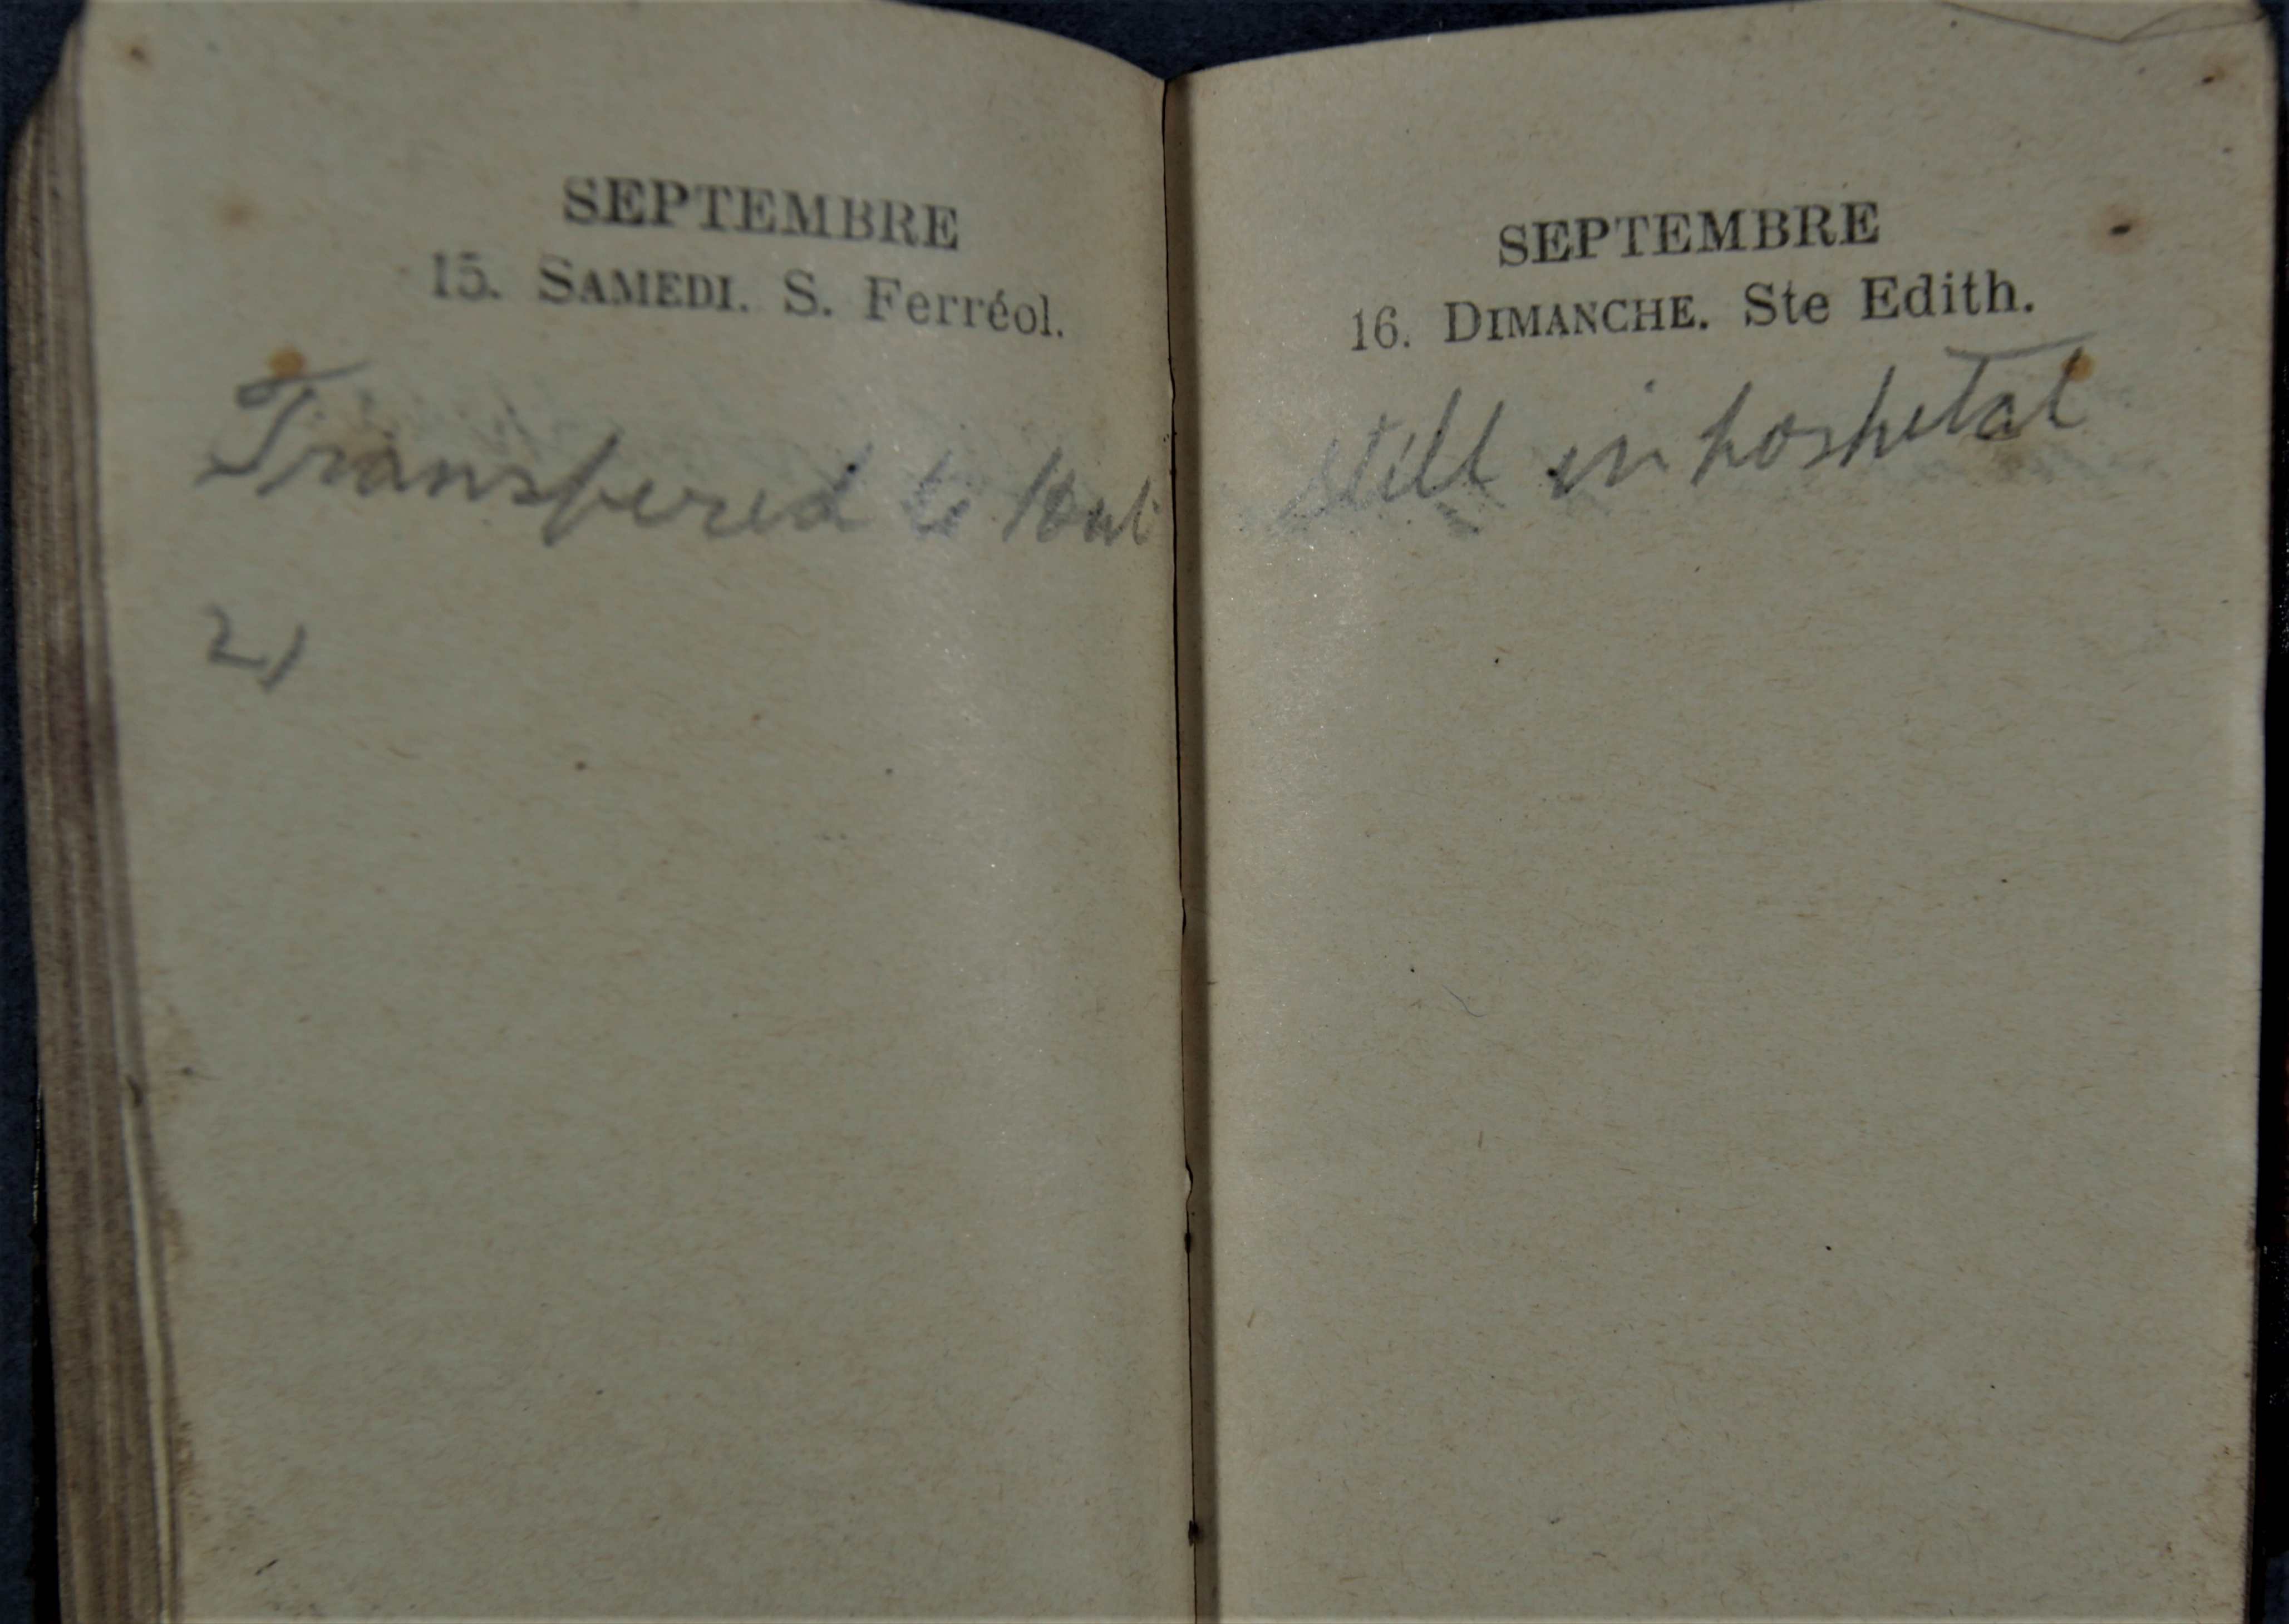 SEPTEMBRE
15. SAMEDI. S. Ferréol.
Transfered to Hut
21
SEPTEMBRE
16. DIMANCHE. Ste Edith.
Still in hospital